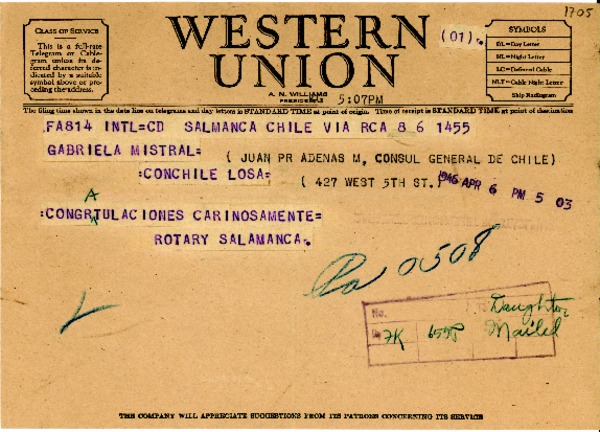 1705
CLASS OF SERVICE
This is a full-rate
Telegram or Cable-
gram unless its de-
ferred character is in-
dicated by a suitable
symbol above or pre-
ceding the address.
WESTERN
UNION
(01)
A. N. WILLIAMS
PRESIDENT
5:07PM
SYMBOLS
DL=Day Letter
NL=Night Letter
LC=Deferred Cable
NLT=Cable Night Letter
Ship Radiogram
The filing time shown in the date line on telegrams and day letters is STANDARD TIME at point of origin. Time of receipt is STANDARD TIME at point of destination
FA814 INTL=CD SALMANCA CHILE VIA RCA 8 6 1455
GABRIELA MISTRAL= ( JUAN PR ADENAS M, CONSUL GENERAL DE CHILE)
=CONCHILE LOSA= ( 427 WEST 5TH ST.)
1946 APR 6 PM 5 03
A
:CONGRTULACIONES CARINOSAMENTE=
ROTARY SALAMANCA.
0508
No.
Daughton
7K
Mailed
THE COMPANY WILL APPRECIATE SUGGESTIONS FROM ITS PATRONS CONCERNING ITS SERVICE